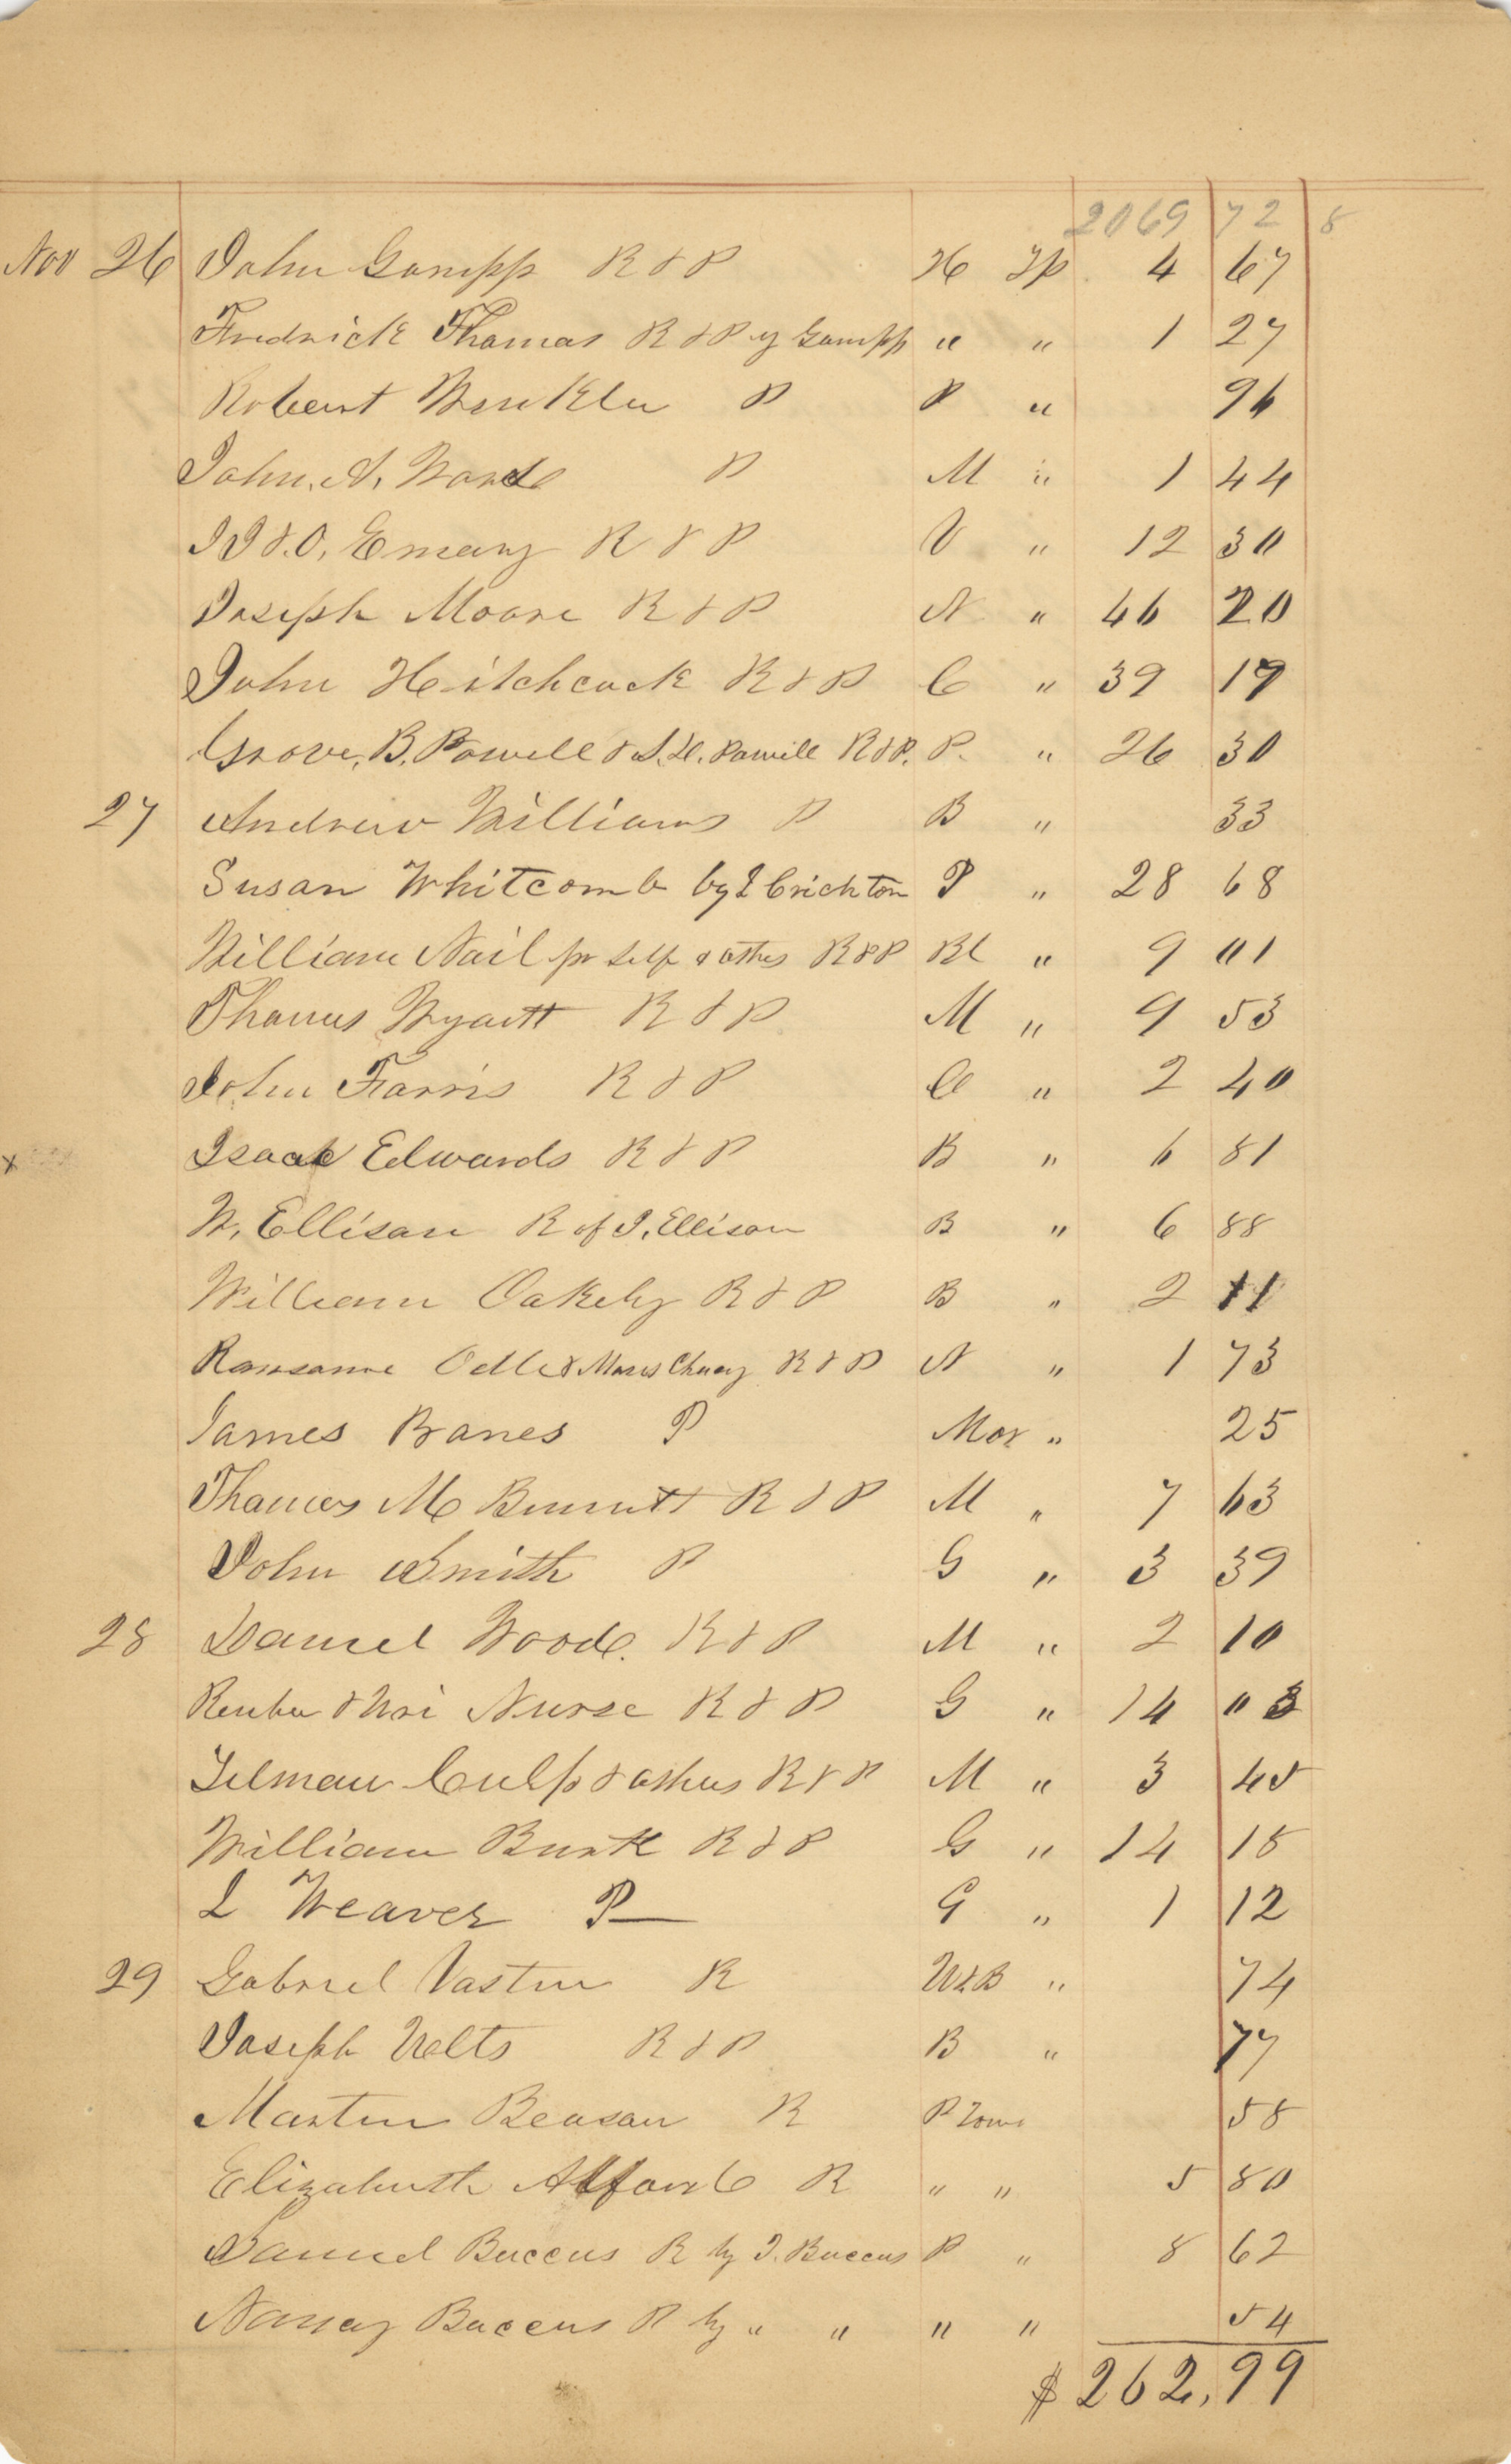 2069 72 8
Nov 26 John Gampp R & P H Tp. 4 67
Fredrick Thomas R & P by Gampp " " 1 27
Robert Winkler P P " 96
John. A. Ward P M " 1 44
J J & O. Emery R & P V " 12 30
Joseph Moore R & P N " 46 20
John Hitchcock R & P C " 39 19
Grove. B. Powell & S. H. Powell R & P. P. " 26 30
27 Andrew Williams P B " 33
Susan Whitcomb by J Crichton P " 28 68
William Nail for self & others R & P Bl " 9 01
Thomas Wyatt R & P M " 9 53
John Farris R & P C " 2 40
x Isaac Edwards R & P B " 6 81
W. Ellison R of J. Ellison B " 6 88
William Oakely R & P B " 2 11
Ransome Odle & R & P N " 1 73
James Banes P Mor " 25
Thomas M Bennett R & P M " 7 63
John Smith P G " 3 39
28 Daniel Wood. R & P M " 2 10
Reuben & Uri Nurse R & P G " 14 03
Tilman Culp & others R & P M " 3 45
William Burk R & P G " 14 18
L Weaver P G " 1 12
29 Gabriel Vasten R W&B " 74
Joseph Uelts R & P B " 77
Martin Beason R P Town 58
Elizabeth Alford R " " 5 80
Samuel Buccus R by J. Buccus P " 8 62
Nancy Buccus R by " " " " 54
$262,99